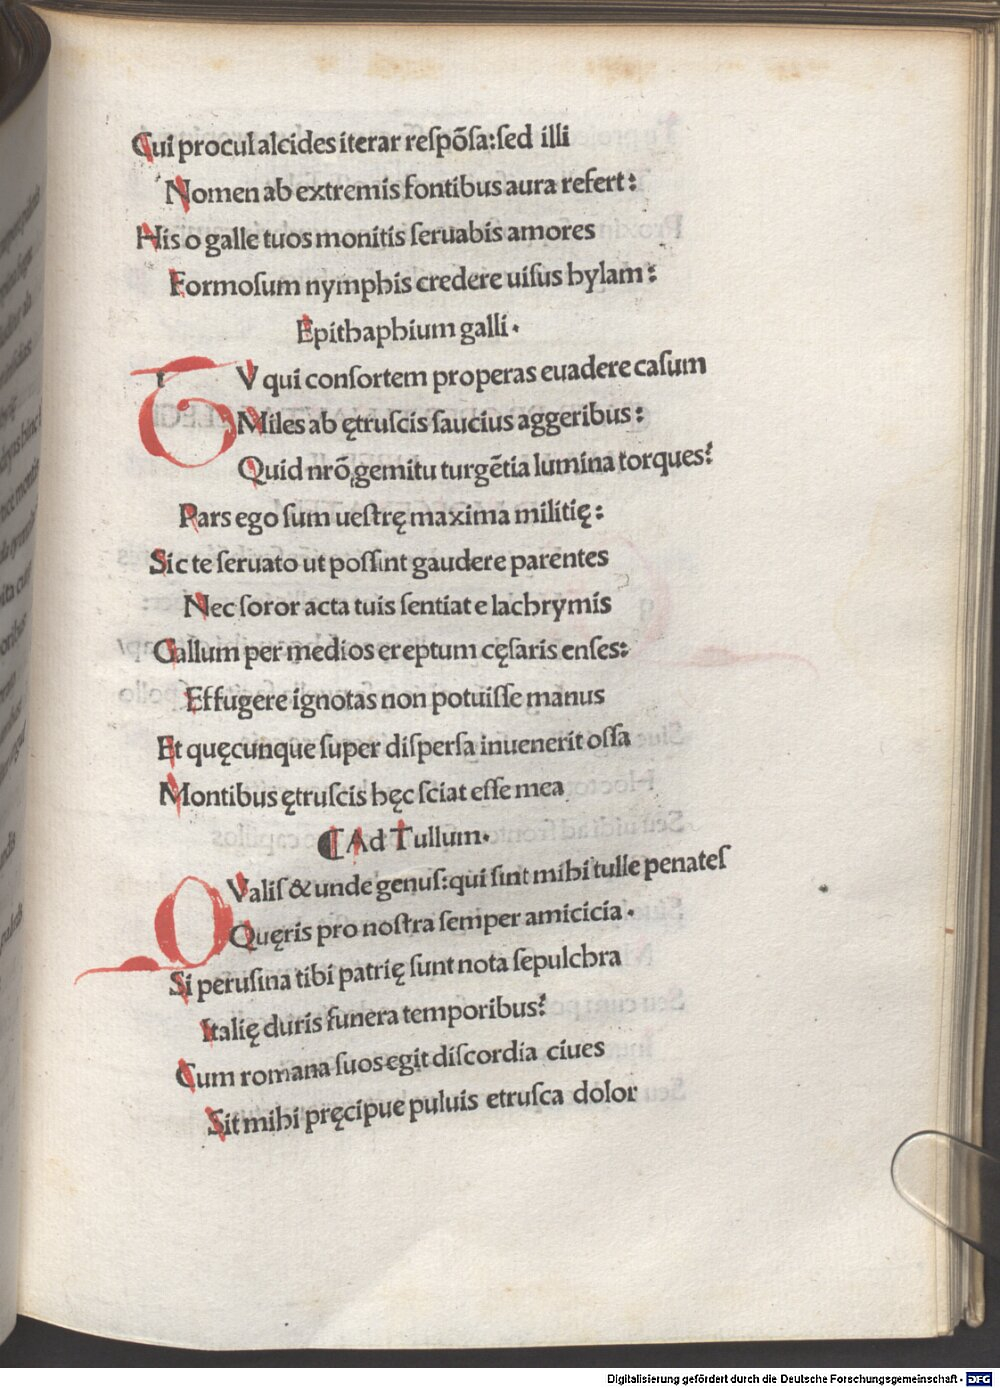 Cui procul alcides iterar reſpõſa:ſed illi
Nomen ab extremis fontibus aura refert:
His o galle tuos monitis ſeruabis amores
Formoſum nymphis credere uiſus hylam:
Epithaphium galli.
TV qui conſortem properas euadere caſum
Miles ab ętruſcis ſaucius aggeribus:
Quid nrõ gemitu turgẽtia lumina torques?
Pars ego ſum ueſtrę maxima militię:
Sic te ſeruato ut poſſint gaudere parentes
Nec ſoror acta tuis ſentiat e lachrymis
Gallum per medios ereptum cęſaris enſes:
Effugere ignotas non potuiſſe manus
Et quęcunque ſuper diſperſa inuenerit oſſa
Montibus ętruſcis hęc ſciat eſſe mea
⁋ Ad Tullum.
QValiſ & unde genuſ:qui ſint mihi tulle penateſ
Quęris pro noſtra ſemper amicicia.
Si peruſina tibi patrię ſunt nota ſepulchra
Italię duris funera temporibus?
Cum romana ſuos egit diſcordia ciues
Sit mihi pręcipue puluis etruſca dolor
Digitalisierung gefördert durch die Deutsche Forschungsgemeinschaft - DFG